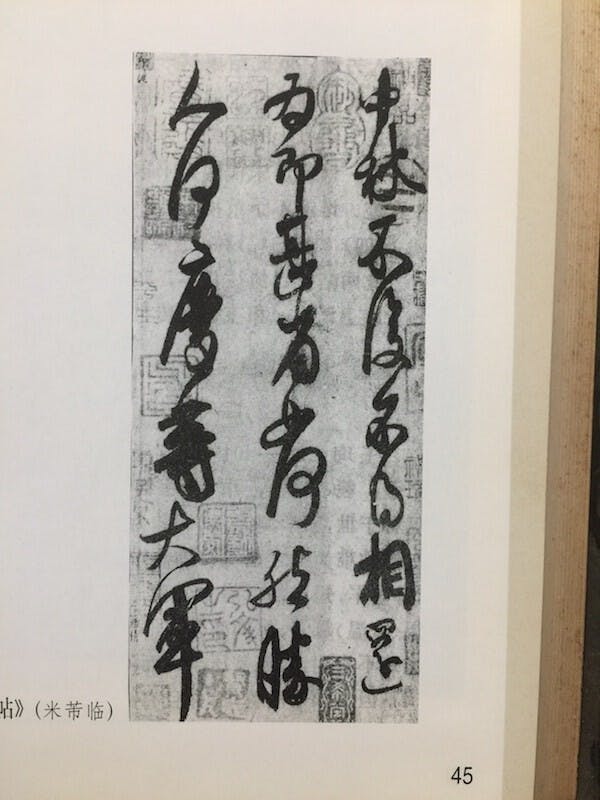 中秋不復不得相還
為即甚省如何然勝
人何慶等大軍
帖》(米芾临)
45